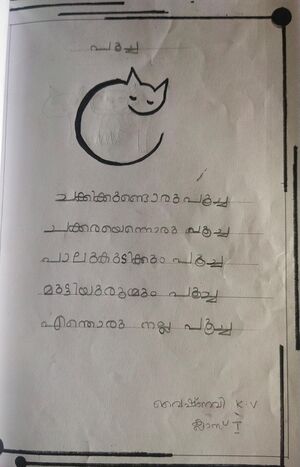 പൂച്ച
ചക്കിക്കുണ്ടൊരു പൂച്ച
ചക്കരയെന്നൊരു പൂച്ച
പാലുകുടിക്കും പൂച്ച
മുട്ടിയുരുമ്മും പൂച്ച
എന്തൊരു നല്ല പൂച്ച
വൈഷ്ണവി K.V
ക്ലാസ് I